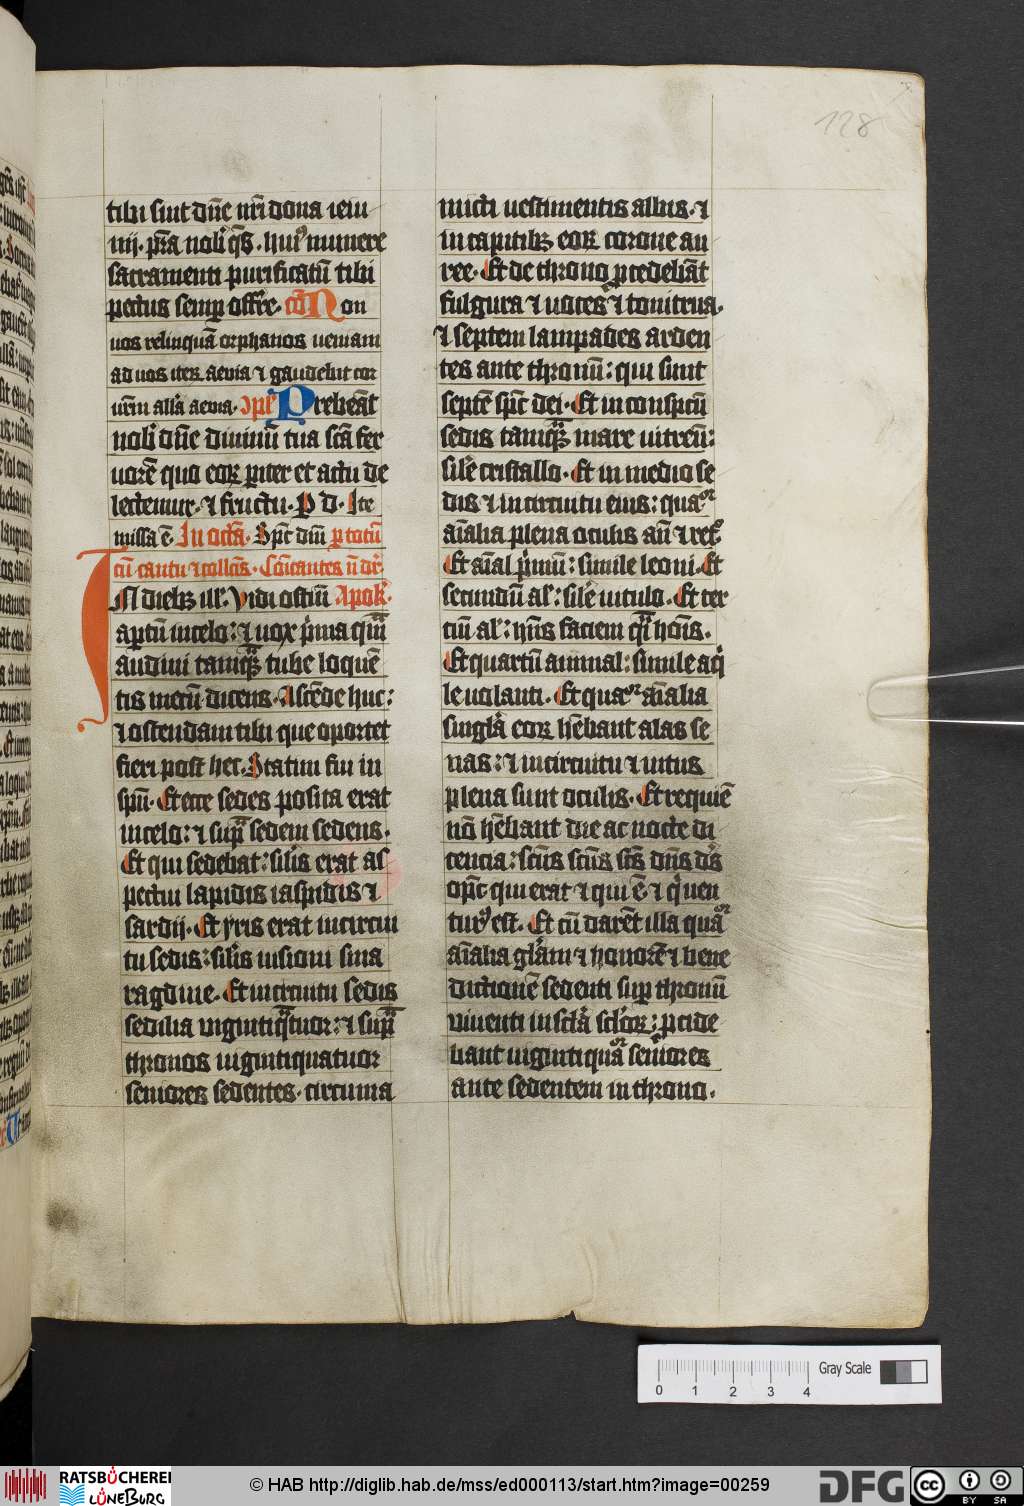 128
tibi sint dn̄e nr̄i dona ieiu
nij. pr̄a nobͥ qs̄. huiꝰ munere
sacramenti purificatū tibi
pectus semꝑ offr̄e. cō Non
uos relinquā orphanos ueniam
ad uos iteꝝ aeuia ⁊ gaudebit cor
ur̄m all'a aeuia. Prebeāt
nobͥ dn̄e diuinū tua scā fer
uorē quo eoꝝ ꝑiter et actu de
lectemur. ⁊ fructu. P d. Ite
missa ē. In octā. Spc̄ dm̄ ꝑ totū
cū cantu ⁊ collc̄is. Cōicantes n̄ dr̄.
IN diebꝫ ill'. Vidi ostiū Apok'.
aꝑtū in celo: ⁊ uox pͥma quā
audiui tamqͣꝫ tube loquē
tis mecū dicens. Ascēde huc:
⁊ ostendam tibi que oportet
fieri post hec. Statim fui in
spū. Et ecce sedes posita erat
in celo: ⁊ supͣ sedem sedens.
Et qui sedebat: silͥis erat as
pectui lapidis iaspidis ⁊
sardij. Et yris erat in circui
tu sedis: silͥis uisioni sma
ragdine. Et in circuitu sedis
sedilia uigintiqͣtuor: ⁊ supͣ
thronos uigintiquatuor
seniores sedentes. circuma
micti uestimentis albis. ⁊
in capitibꝫ eoꝝ corone au
ree. Et de throno ꝓcedebāt
fulgura ⁊ uoces ⁊ tonitrua.
⁊ septem lampades arden
tes ante thronū: qui sunt
septē spc̄ dei. Et in conspcū
sedis tamqͣꝫ mare uitreū:
sil'e cristallo. Et in medio se
dis ⁊ in circuitu eius: quaᵒʳ
aīalia plena oculis an̄ ⁊ retꝰ.
Et aīal pͥmū: simile leoni. Et
secundū al': sil'e uitulo. Et ter
ciū al': hn̄s faciem qͣi hoīs.
Et quartū animal: simile aqͥ
le uolanti. Et quaᵒʳ aīalia
singl'a eoꝝ hēbant alas se
nas: ⁊ in circuitu ⁊ intus
plena sunt oculis. Et requiē
nō hēbant die ac nocte di
cencia: scūs scūs scūs dn̄s ds̄
opc̄ qui erat ⁊ qui ē ⁊ qͥ uen
turꝰ est. Et cū darēt illa quaᵒʳ
aīalia gl'am ⁊ honorē ⁊ bene
dictionē sedenti suꝑ thronū
uiuenti in scl'a scl'oꝝ: ꝓcide
bant uigintiquaᵒʳ seniores
ante sedentem in throno.
Gray Scale
0 1 2 3 4
RATSBÜCHEREI
LÜNEBURG
© HAB http://diglib.hab.de/mss/ed000113/start.htm?image=00259
DFG
cc
BY SA